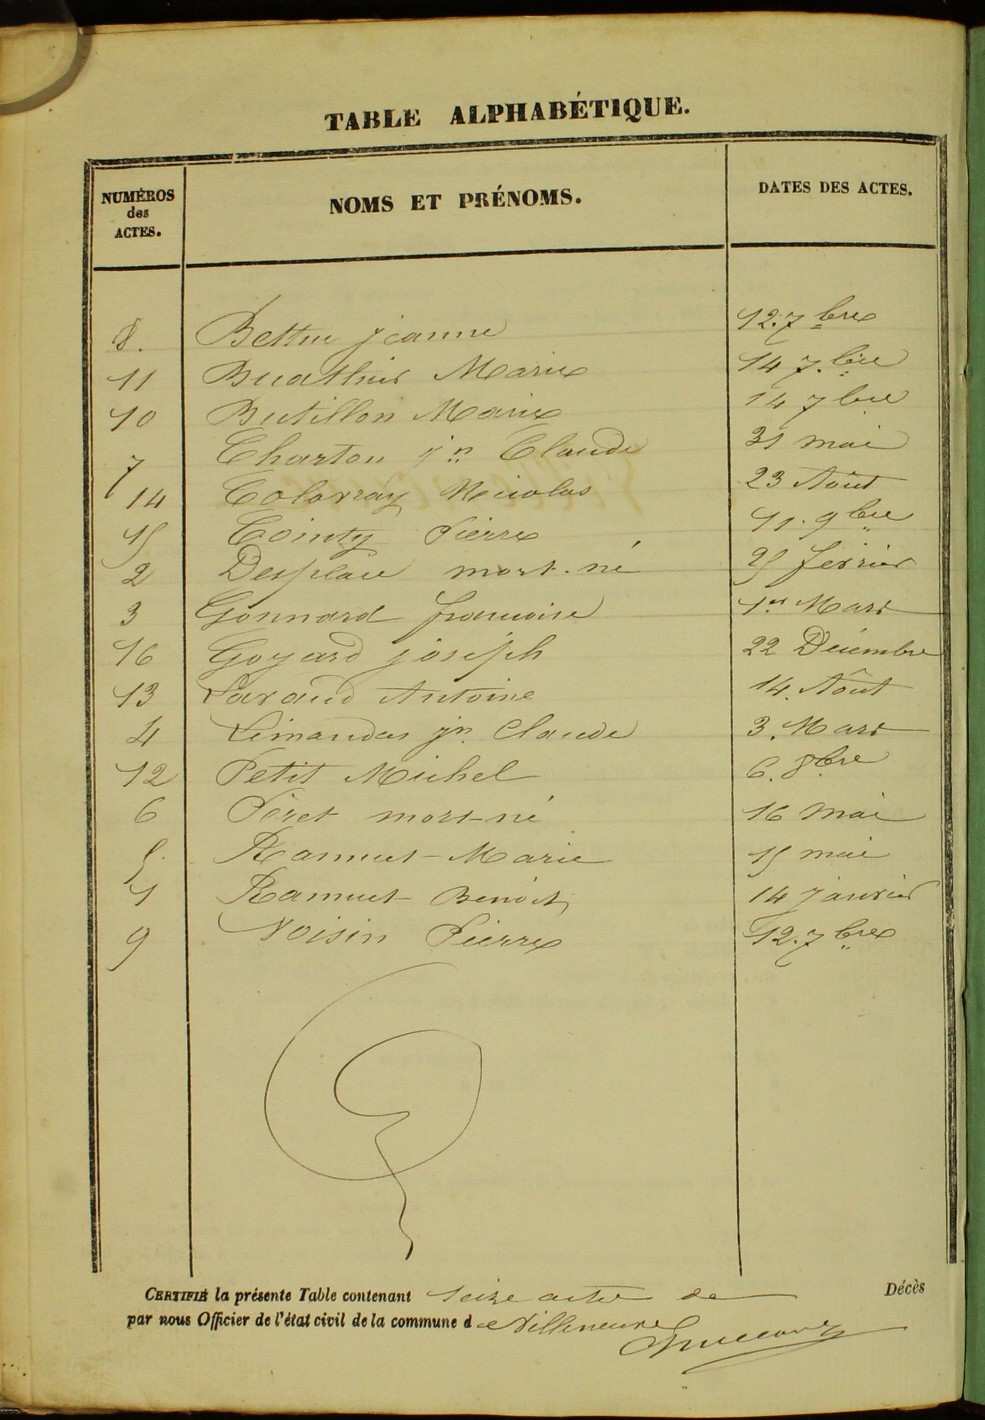 TABLE ALPHABÉTIQUE.
NUMÉROS des ACTES. NOMS ET PRÉNOMS. DATES DES ACTES.
8. jeanne 12. 7bre
11 Buathier Marie 14 7.bre
10 Butillon Marie 14 7bre
7 Charton jn Claude 31 mai
14 Colovray Nicolas 23 Août
15 Cointy Pierre 11. 9bre
2 Desplace mort-né 25 février
3 Gonnard françoise 1er Mars
16 Goyard joseph 22 Décembre
13 Laraud Antoine 14. Aôut
4 Limandas jn. Claude 3. Mars
12 Petit Michel 6. 8bre
6 Péret mort-né 16 mai
5. Ramuet Marie 15 mai
1 Ramuet Benoit 14 janvier
9 Voisin Pierre 12. 7bre
CERTIFIÉ la présente Table contenant Seize actes de Décès
par nous Officier de l'état civil de la commune de Villeneuve